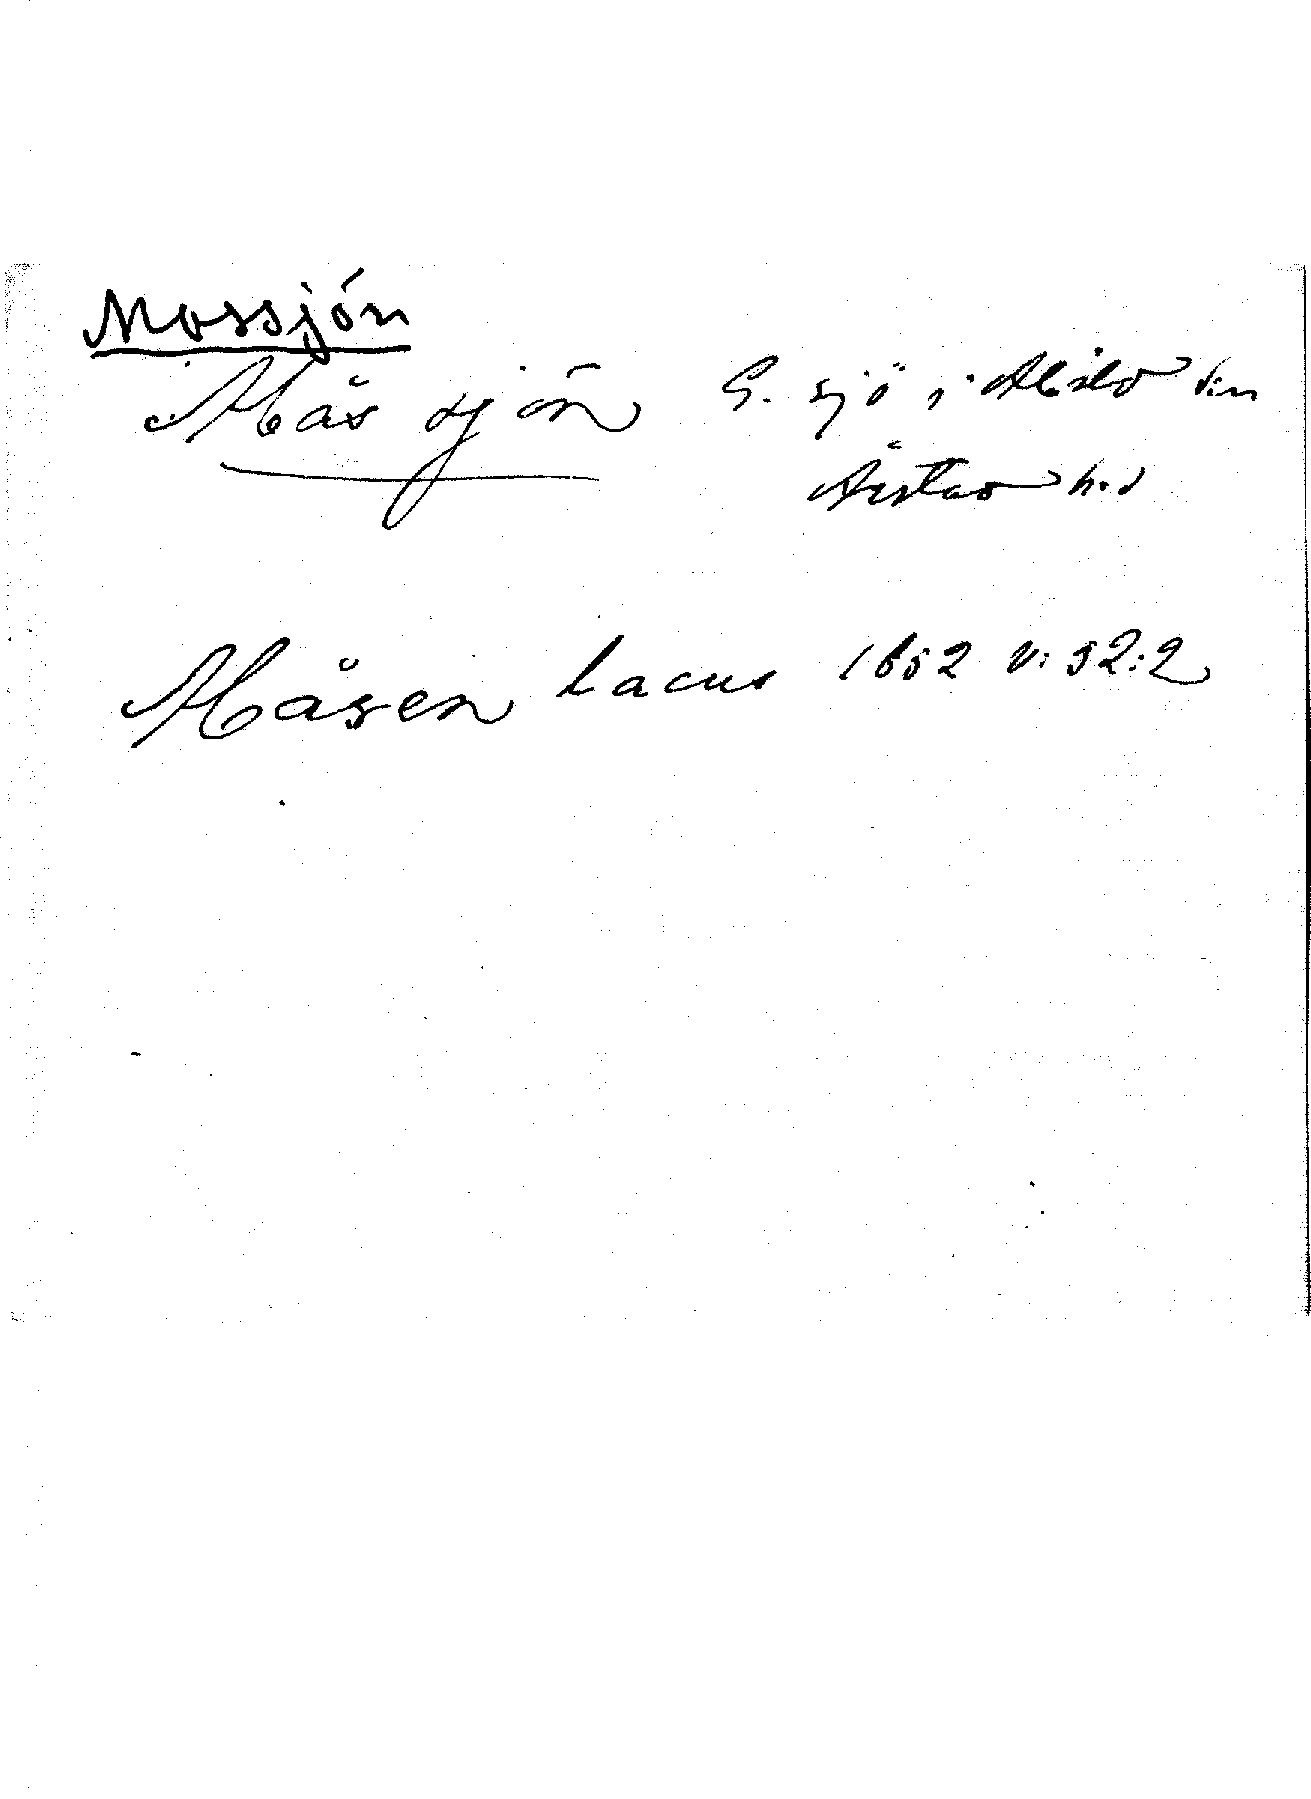 Mossjön
Måssjön G. sjö i Abild sn
Årstad hd
Måsen lacus 1652 V: 52:2